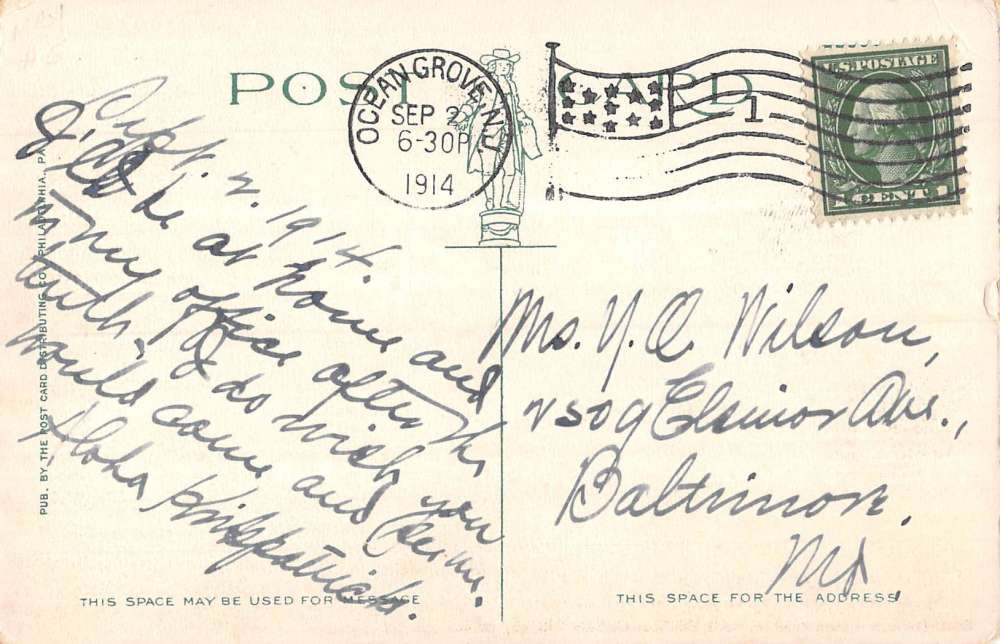 POST CARD
OCEAN GROVE, N.J.
SEP 2
6-30P
1914
1
U.S. POSTAGE
1 CENT 1
Sept. 2. 1914.
I'll be at home and
in my office after the
tenth. I do wish you
would come and see me.
Aloha Kirkpatrick.
Mrs. Y. O. Wilson,
2509 Elsinor Ave.,
Baltimore,
Md
PUB. BY THE POST CARD DISTRIBUTING CO., PHILADELPHIA, PA.
THIS SPACE MAY BE USED FOR MESSAGE
THIS SPACE FOR THE ADDRESS